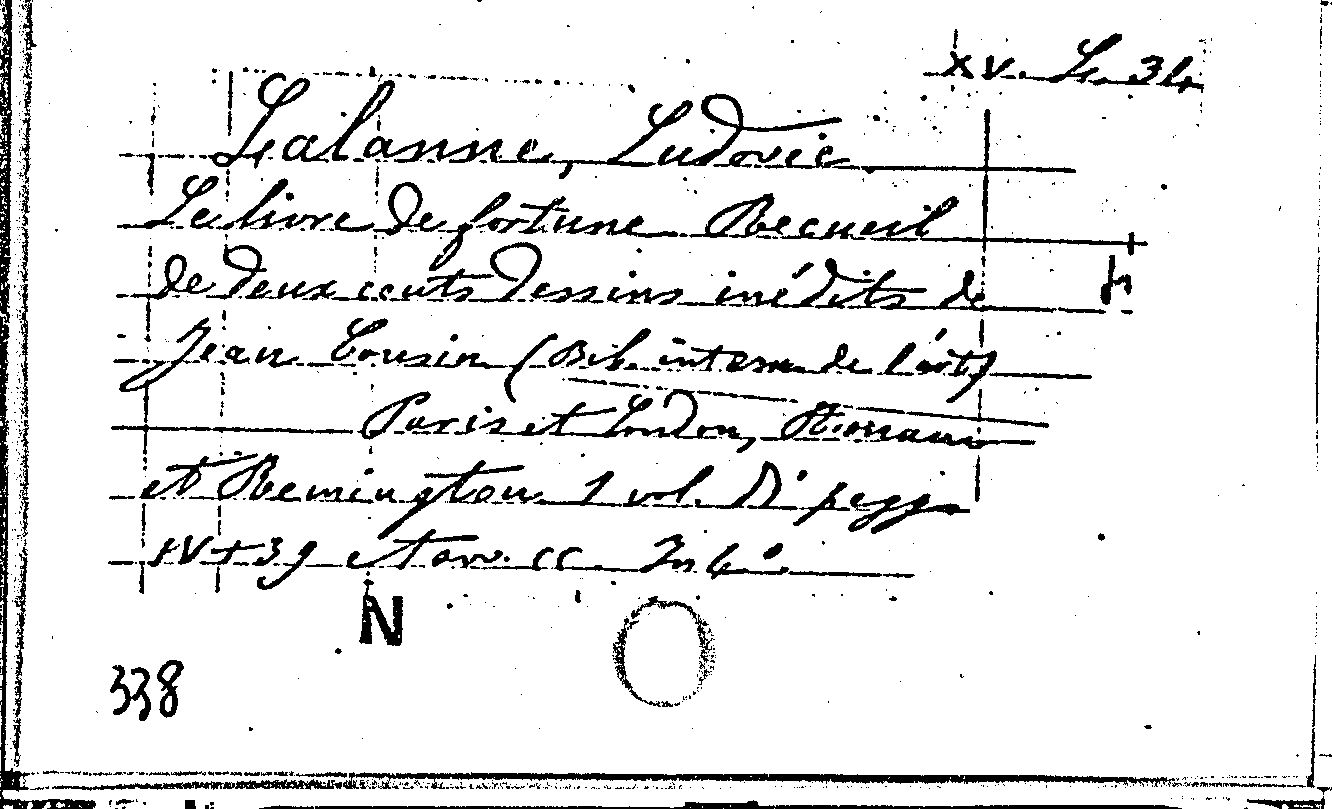 XV. L. 34
Lalanne, Ludovic
Le livre de fortune Recueil
de deux cents dessins inédits de
Jean Cousin (Bib. intern. de l'art)
Paris et London,
et Remington 1 vol. di pagg.
IV+39 e tav. CC. In 4°.
N
338